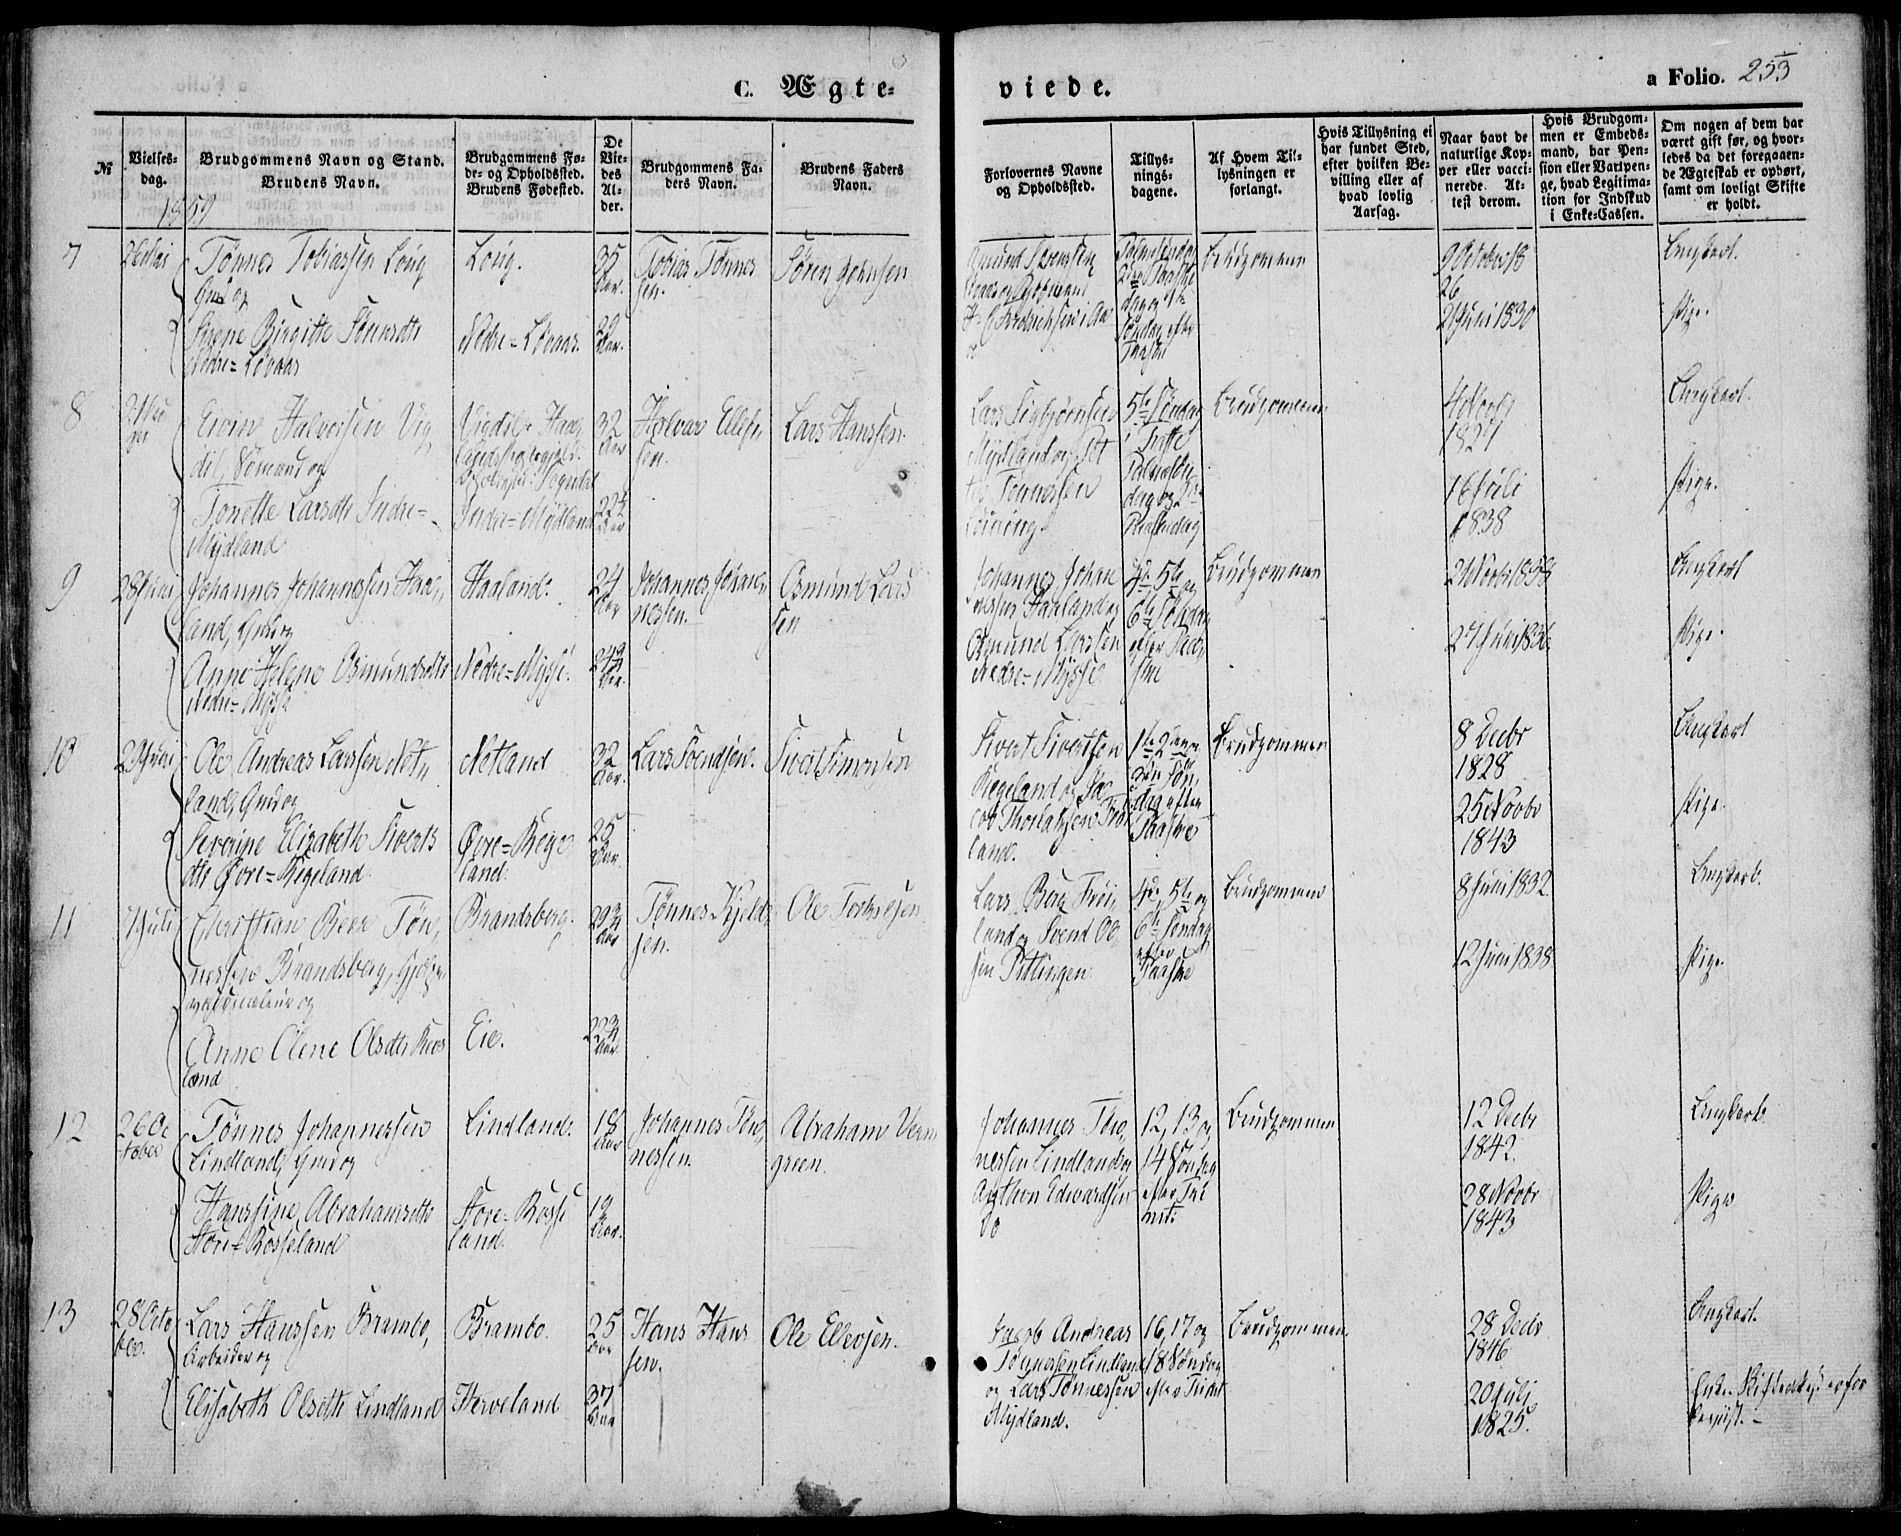 C. Ægte-
viede.
a Folio. 253
№
Vielses-
dag.
Brudgommens Navn og Stand.
Brudens Navn.
Brudgommens Fø-
de- og Opholdssted.
Brudens Fødested.
De
Vie-
des
Al-
der.
Brudgommens Fa-
ders Navn.
Brudens Faders
Navn.
Forlovernes Navne
og Opholdssted.
Tillys-
nings-
dagene.
Af Hvem Til-
lysningen er
forlangt.
Hvis Tillysning ei
har fundet Sted,
efter hvilken Be-
villing eller af
hvad lovlig
Aarsag.
Naar havt de
naturlige Kop-
per eller vacci-
nerede. At-
test derom.
Hvis Brudgom-
men er Embeds-
mand, har Pen-
sion eller Vartpen-
ge, hvad Legitima-
tion for Indskud
i Enke-Cassen.
Om nogen af dem har
været gift før, og hvor-
ledes da det foregaaen-
de Ægteskab er ophørt,
samt om lovligt Skifte
er holdt.
1859
7
Tønnes Tobiassen Løng
Gmd og
Sirene Birgitte Sørensdtr
Nedre=Løvaas
Løng.
Nedre=Løvaas.
35
Aar.
29
Aar.
Tobias Tønnes
sen.
Søren Johnsen
Palmesøndag
2den Paaske
dag og 1ste
Søndag efter
Paaske
Brudgommen
9 October 18
26
2 Juni 1830
Ungkarl.
Pige.
8
Halvorsen Vig
dil, Sømand og
Tonette Larsdtr Indre=
Mydland
Indre=Mydland
32
Aar
22¼
Aar
Halvar Ellef,
sen.
Lars Hanssen.
Lars Sigbjørnsen
Mydland og Pet
ter Tønnessen
5te Søndag
i Faste
Palmesøn
dag og 2den
Paaskedag
Brudgommen
1827
16 Juli
1838
Ungkarl.
Pige.
9
28 Juni
Johannes Johannessen Haa,
land, Gmd og
Anne Helene Osmundsdtr
Nedre=Mysse
Haaland.
Nedre=Mysse.
24
Aar
Johannes Johan
nessen.
Osmund Lars
sen
Johannes Johan
nessen Haaland og
Osmund Larssen
Nedre=Mysse
4de, 5te og
6te Søndag
efter Paa,
ske
Brudgommen
27 Juni 1836
Ungkarl
Pige.
10
29 Juni
Ole Andreas Larssen Net,
land, Gmd og
Severine Elizabeth Siverts
dtr Øvre=Kegeland.
Netland
Øvre=Kege
land.
32
Aar.
25
Aar.
Lars Svendsen.
Sivert Simonsen
Sivert Sivertsen
Kegeland og Ja
cob Thomassen Frø
land.
1ste 2den og
3die Søn,
dag efter
Paaske
Brudgommen
8 Decbr
1828
25 Novbr
1843
Ungkarl
Pige.
11
7 Juli
Christian Beer Tøn,
nessen Brandsberg,
og
Anne Olene Olsdtr
land
Brandsberg.
Eie.
29¾
Aar
22¾
Aar
Tønnes Kjelds
sen.
Ole
Lars Berg Frøi,
land og Svend Ol,
sen Pitlingen.
4de, 5te og
6te Søndag
efter
Paaske
Brudgommen
8 Juni 1832
12 Juni 1838
Ungkarl.
Pige.
12
26 Oc
tober
Tønnes Johannessen
Lindland, Gmd og
Hanssine Abrahamsdtr
Store=Rosseland
Lindland.
Store=Rosse
land.
18
Aar
19
Aar.
Johannes Tøn,
nessen.
Abraham Vern
green.
Johannes Tøn,
nessen Lindland og
Anthon Edwardsen
12, 13 og
14 Søndag
efter Tri
nit.
Brudgommen
12 Decbr
1842.
28 Novbr
1843
Ungkarl.
Pige
13
28 Octo
ber.
Lars Hanssen Brambo,
Arbeider og
Elisabeth Olsdtr Lindland
Brambo.
Herveland
25
Aar
37
Aar
Hans Hans
sen.
Ole Ellevsen.
Jacob Andreas
Tønnessen Lindland
og Lars Tønnessen
Mydland.
16, 17 og
18 Søndag
efter Trinit
Brudgommen.
28 Decbr
1846
20 Juli
1825.
Ungkarl.
Enke.